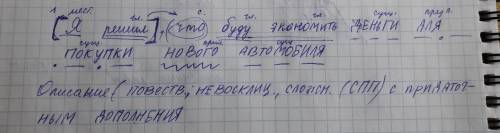 1. мест. гл. с. гл. гл. сущ. предл.
[Я решил], (что) буду экономить деньги для
сущ. прил. сущ.
покупки нового автомобиля
Описание (повеств., невосклиц., сложн. (СПП) с придаточ-
ным дополнения